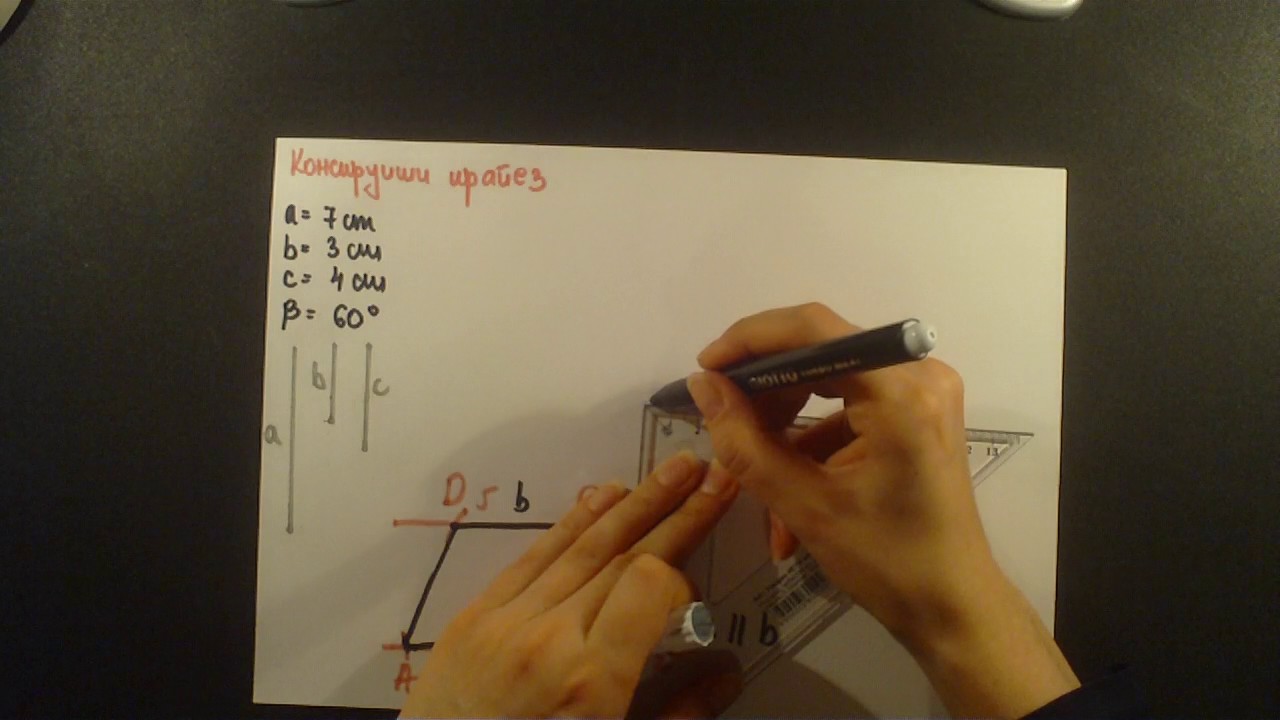 Конструиши трапез
a = 7 cm
b = 3 cm
c = 4 cm
β = 60°
a
b
c
D
b
A
|| b
13